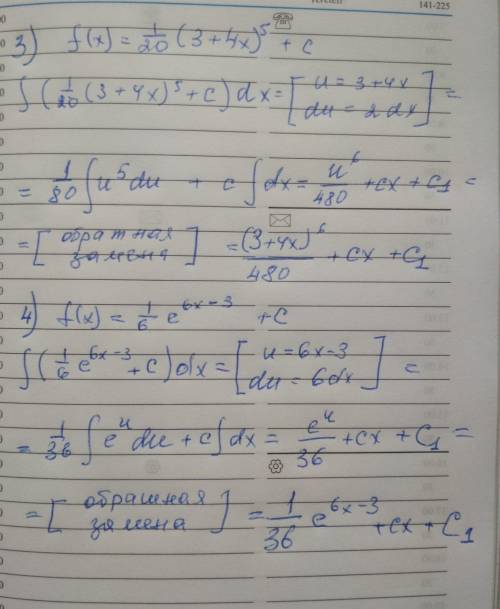 141-225
3) f(x) = 1/20 (3+4x)^5 + c
∫(1/20 (3+4x)^5 + c) dx = [u = 3+4x
du = 2dx] =
= 1/80 ∫u^5 du + c∫dx = u^6/480 + cx + c_1 =
= [обратная
замена] = (3+4x)^6/480 + cx + C_1
4) f(x) = 1/6 e^(6x-3) + C
∫(1/6 e^(6x-3) + C) dx = [u = 6x-3
du = 6dx] =
= 1/36 ∫e^u du + c∫dx = e^u/36 + cx + C_1 =
= [обратная
замена] = 1/36 e^(6x-3) + cx + C_1